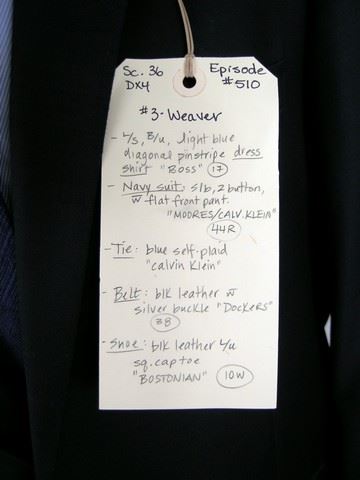 Sc. 36 Episode
DX4 #510
#3-Weaver
- L/S, B/u, light blue
diagonal pinstripe dress
shirt "Boss" 17
- Navy suit: s/b, 2 button,
w flat front pant.
"MOORES/CALV.KLEIN"
44R
- Tie: blue self-plaid
"calvin Klein"
- Belt: blk leather w
silver buckle "DOCKERS"
38
- Shoe: blk leather L/u
sq. cap toe
"BOSTONIAN" 10W